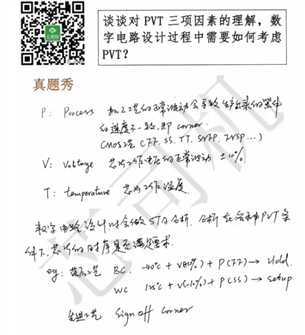 谈谈对 PVT 三项因素的理解，数
字电路设计过程中需要如何考虑
PVT?
真题秀
P: Process 加工工艺的正常波动会导致
的速度不一致, 即 corner
CMOS是 (FF, SS, TT, SNFP, FNSP ...)
V: Voltage 芯片工作电压的正常波动 ±10%
T: temperature 芯片工作温度
数字电路设计时会做STA分析, 分析在各种PVT条
件下, 芯片的时序是否满足要求.
BC: -40℃ + V(10%) + P(FF) → Hold.
WC 125℃ + V(-10%) + P(SS) → setup
先进工艺 Sign off corner
芯司机